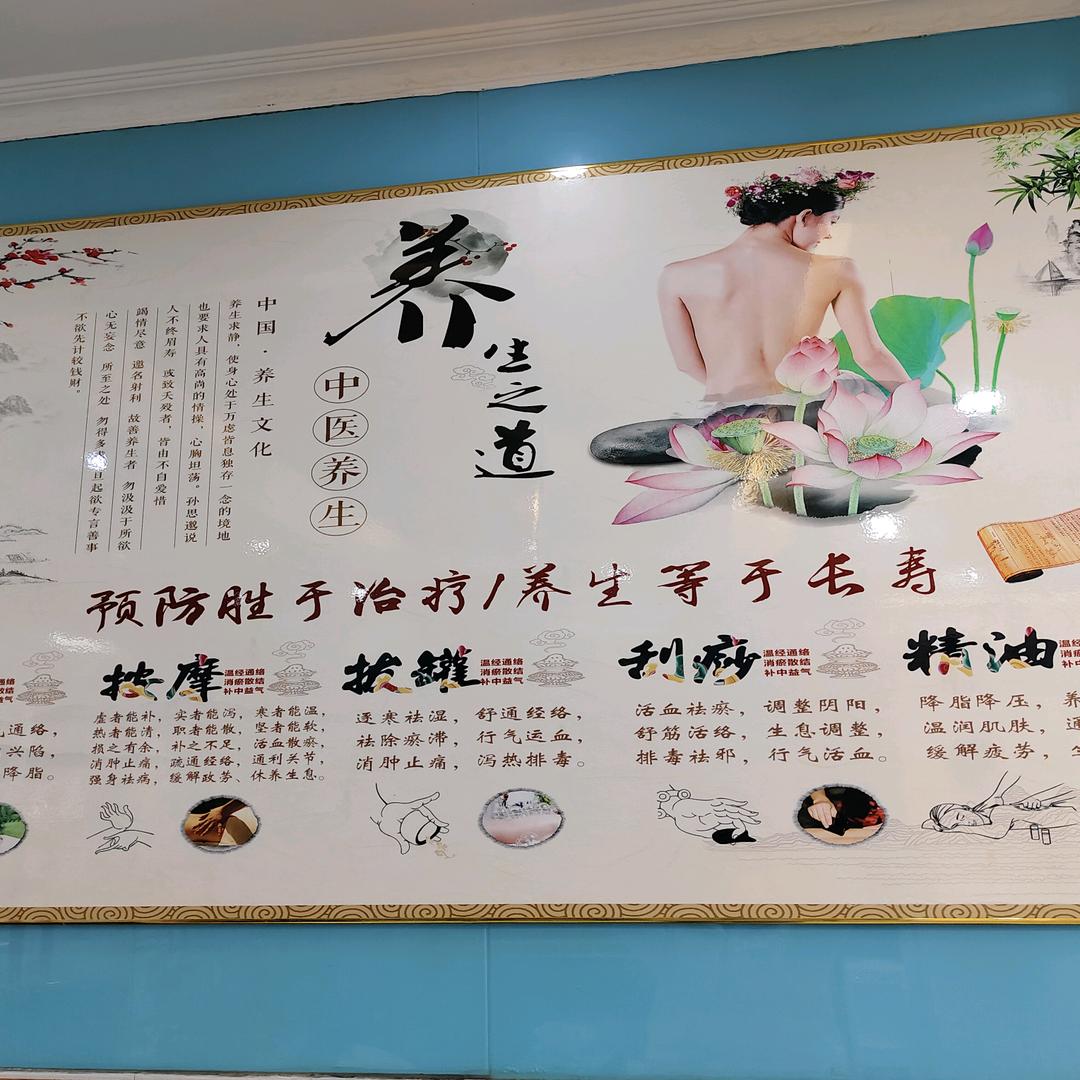 养生之道
中医养生
中国·养生文化
养生求静，使身心处于万虑皆息独存一念的境地
也要求人具有高尚的情操，心胸坦荡。孙思邈说
人不终眉寿 或致夭殁者，皆由不自爱惜
竭情尽意 邀名射利 故善养生者 勿汲汲于所欲
心无妄念 所至之处 勿得多 旦起欲专言善事
不欲先计较钱财。
预防胜于治疗/养生等于长寿
通络
散结
益气
通络，
兴陷，
降脂。
按摩
温经通络
消瘀散结
补中益气
虚者能补， 实者能泻， 寒者能温，
热者能清， 职者能散， 坚者能软，
损之有余， 补之不足， 活血散瘀，
消肿止痛， 疏通经络， 通利关节，
强身祛病， 缓解政劳、 休养生息。
拔罐
温经通络
消瘀散结
补中益气
逐寒祛湿， 舒通经络，
祛除瘀滞， 行气运血，
消肿止痛， 泻热排毒。
刮痧
温经通络
消瘀散结
补中益气
活血祛瘀， 调整阴阳，
舒筋活络， 生息调整，
排毒祛邪， 行气活血。
精油
温经通络
消瘀散结
补中益气
降脂降压， 养
温润肌肤， 通
缓解疲劳，